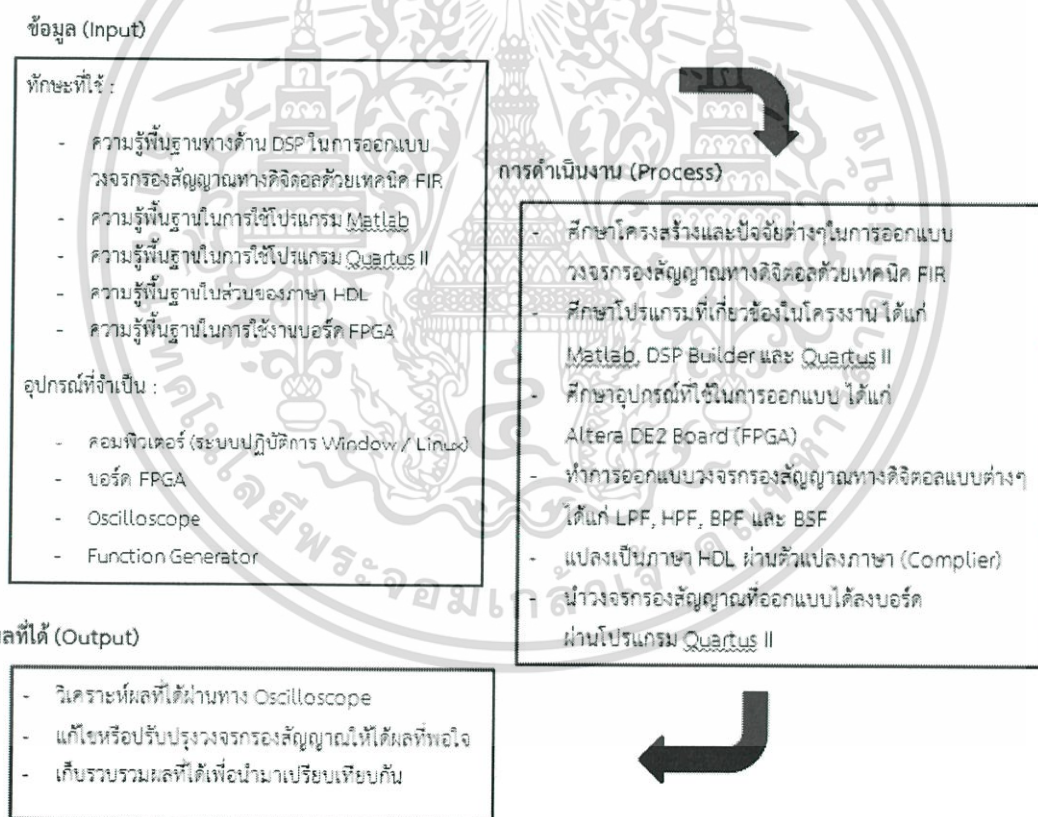 ข้อมูล (Input)
ทักษะที่ใช้ :
- ความรู้พื้นฐานทางด้าน DSP ในการออกแบบ
วงจรกรองสัญญาณทางดิจิตอลด้วยเทคนิค FIR
- ความรู้พื้นฐานในการใช้โปรแกรม Matlab
- ความรู้พื้นฐานในการใช้โปรแกรม Quartus II
- ความรู้พื้นฐานในส่วนของภาษา HDL
- ความรู้พื้นฐานในการใช้งานบอร์ด FPGA
อุปกรณ์ที่จำเป็น :
- คอมพิวเตอร์ (ระบบปฏิบัติการ Window / Linux)
- บอร์ด FPGA
- Oscilloscope
- Function Generator
การดำเนินงาน (Process)
- ศึกษาโครงสร้างและปัจจัยต่างๆในการออกแบบ
วงจรกรองสัญญาณทางดิจิตอลด้วยเทคนิค FIR
- ศึกษาโปรแกรมที่เกี่ยวข้องในโครงงาน ได้แก่
Matlab, DSP Builder และ Quartus II
- ศึกษาอุปกรณ์ที่ใช้ในการออกแบบ ได้แก่
Altera DE2 Board (FPGA)
- ทำการออกแบบวงจรกรองสัญญาณทางดิจิตอลแบบต่างๆ
ได้แก่ LPF, HPF, BPF และ BSF
- แปลงเป็นภาษา HDL ผ่านตัวแปลงภาษา (Complier)
- นำวงจรกรองสัญญาณที่ออกแบบได้ลงบอร์ด
ผ่านโปรแกรม Quartus II
ผลที่ได้ (Output)
- วิเคราะห์ผลที่ได้ผ่านทาง Oscilloscope
- แก้ไขหรือปรับปรุงวงจรกรองสัญญาณให้ได้ผลที่พอใจ
- เก็บรวบรวมผลที่ได้เพื่อนำมาเปรียบเทียบกัน